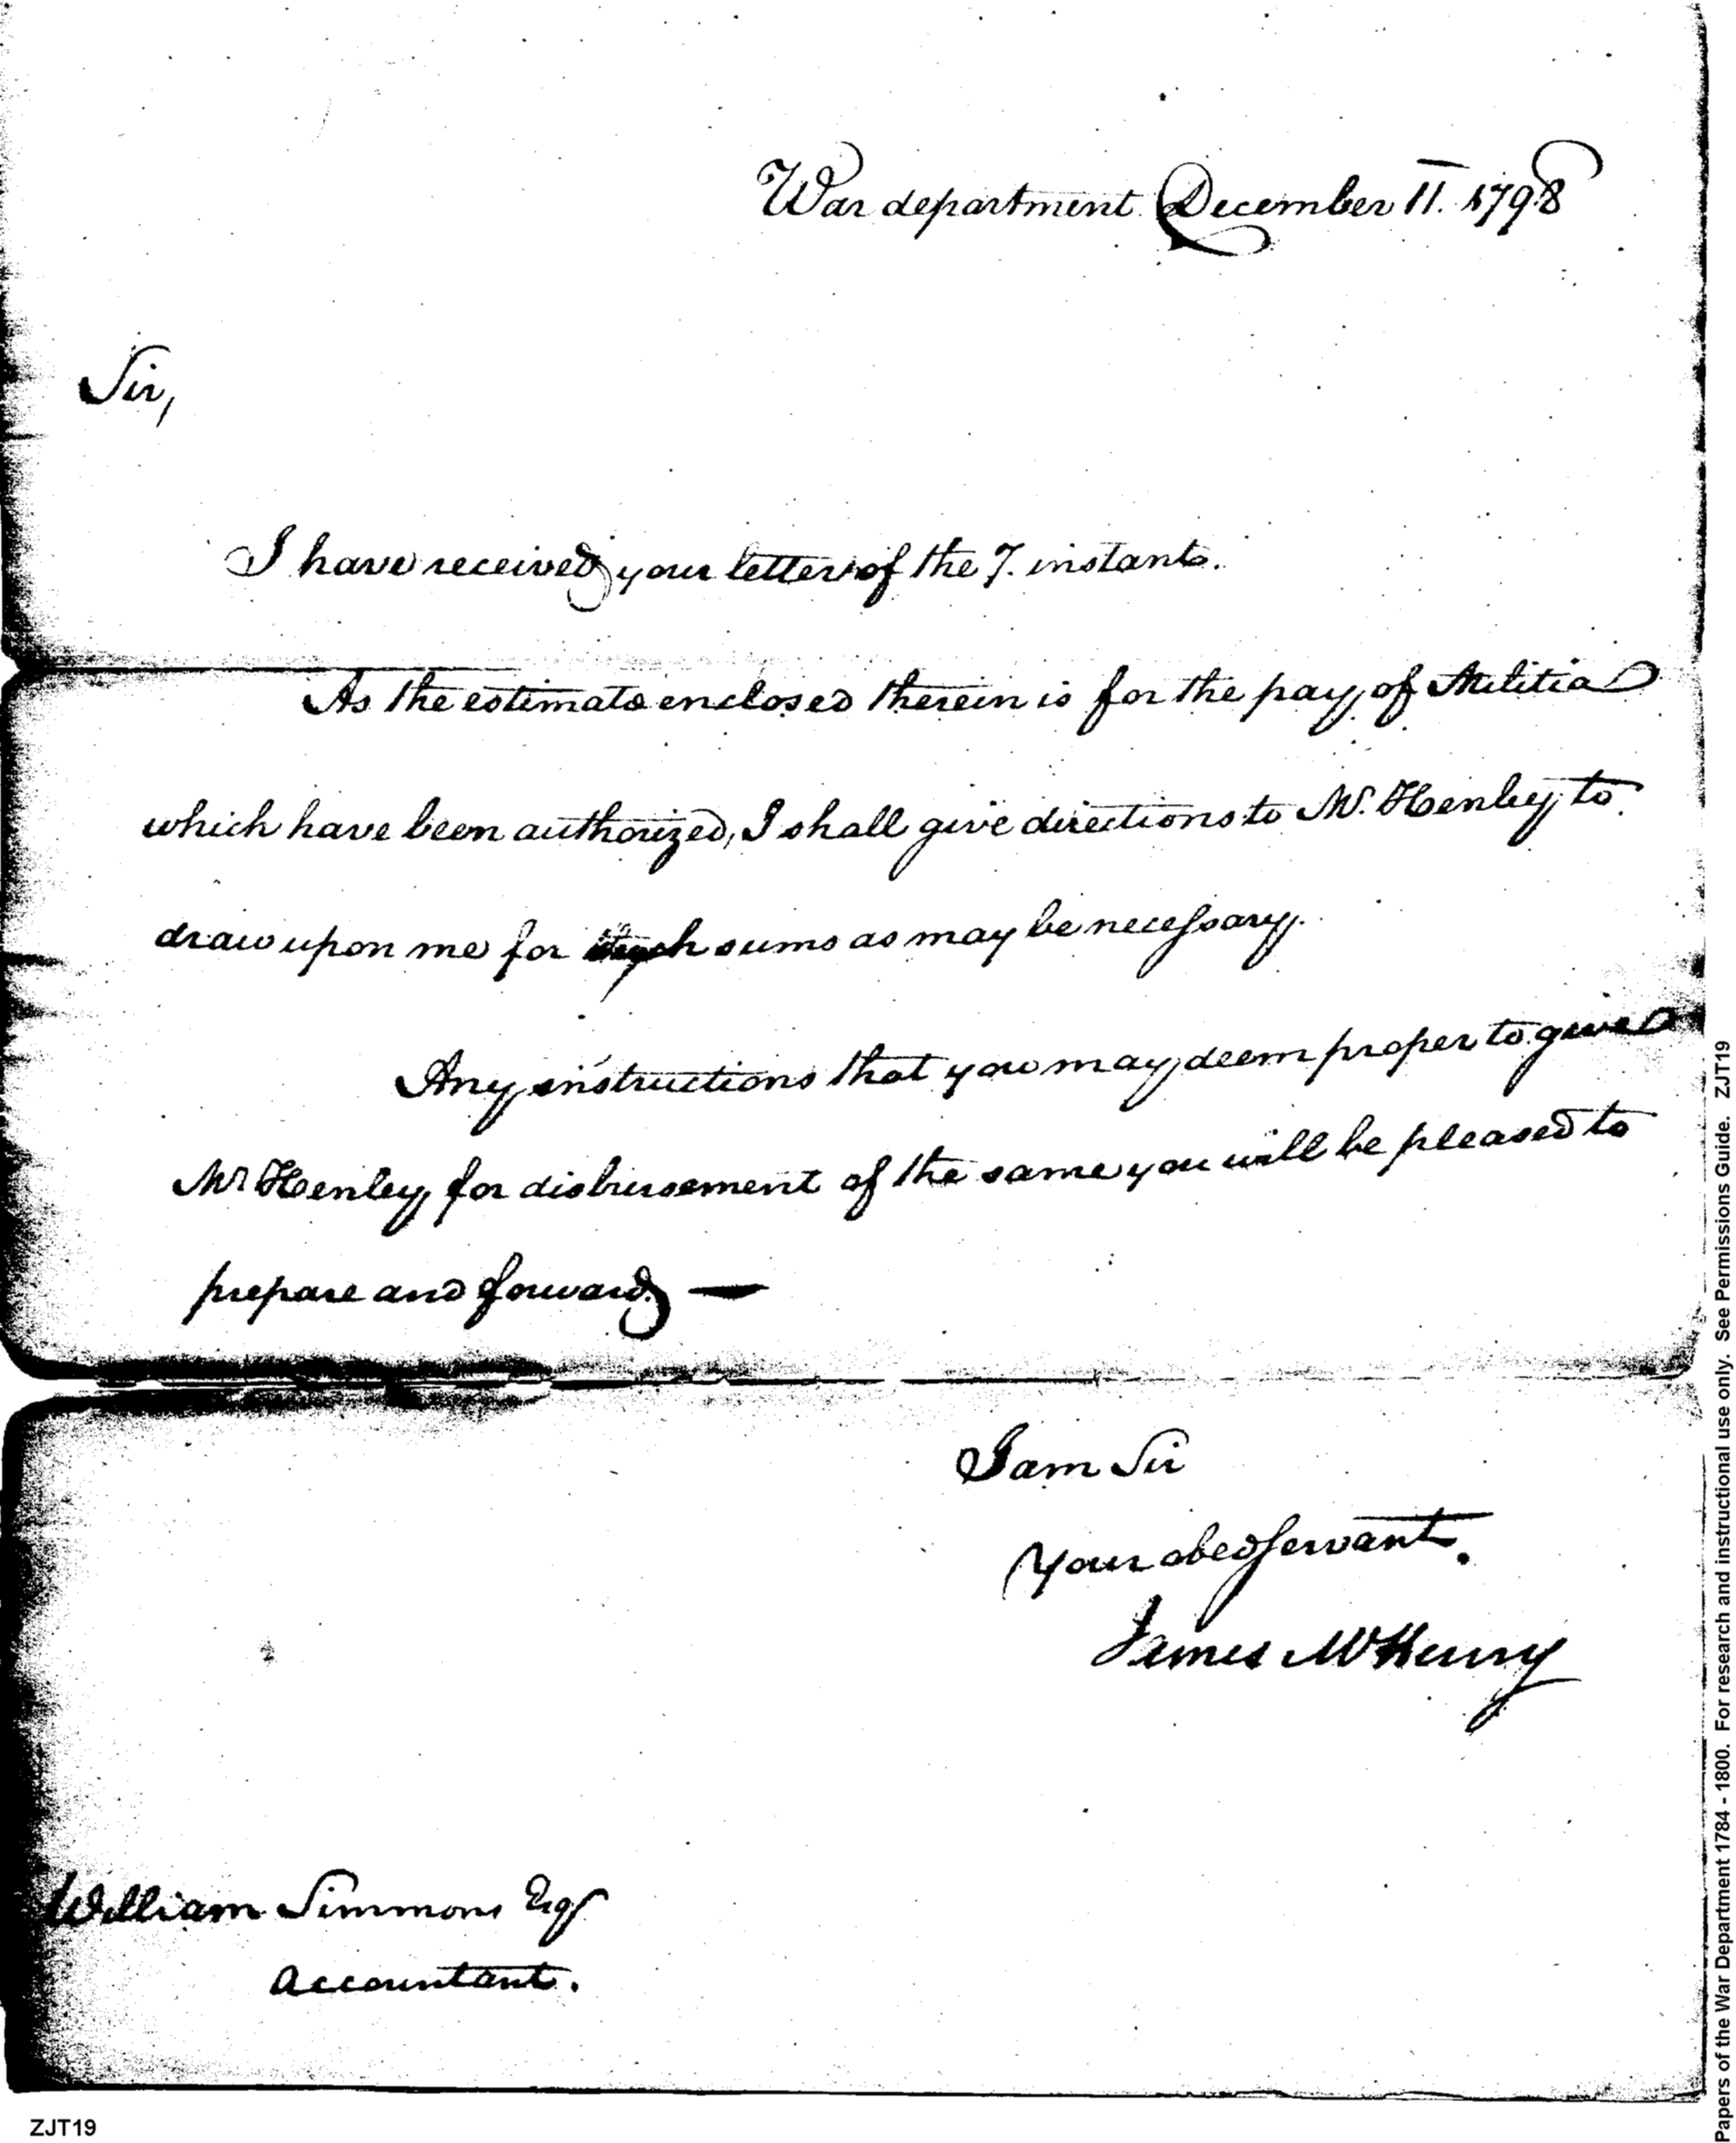 War department December 11. 1798
Sir,
I have received your letter of the 7. instant.
As the estimate enclosed therein is for the pay of Militia
which have been authorized, I shall give directions to Mr. Henley to
draw upon me for such sums as may be necessary.
Any instructions that you may deem proper to give
Mr Henley for disbursement of the same you will be pleased to
prepare and forward —
I am Sir
Your obed servant.
James McHenry
William Simmons Esqr
Accountant.
ZJT19
Papers of the War Department 1784 - 1800. For research and instructional use only. See Permissions Guide. ZJT19